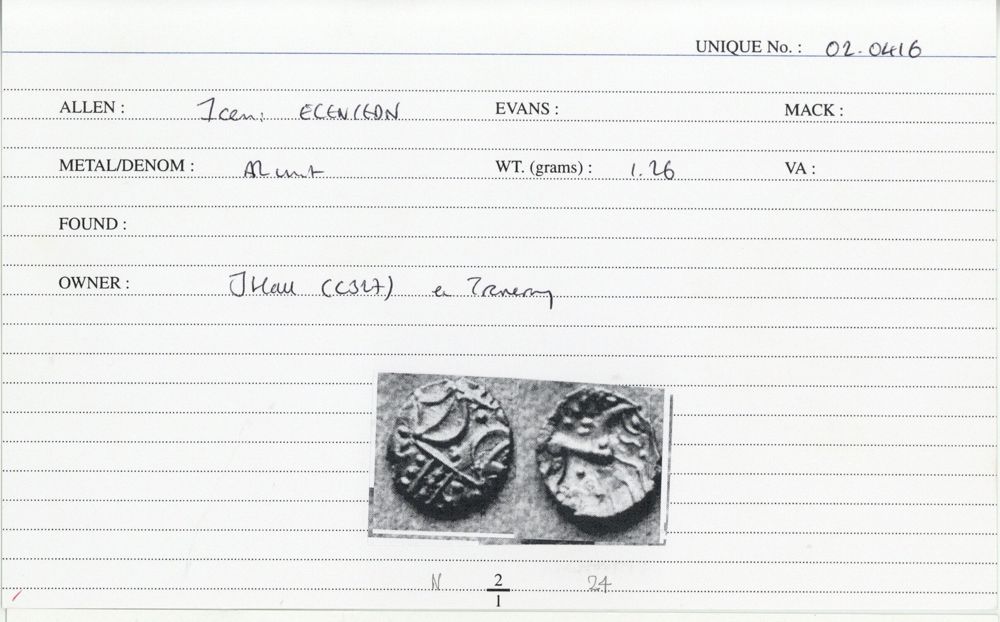 UNIQUE No. : 02.0416
ALLEN : Iceni ECEN/EDN EVANS : MACK :
METAL/DENOM : AR unit WT. (grams) : 1.26 VA :
FOUND :
OWNER : J Hall (CS27) ex
N 2/1 24